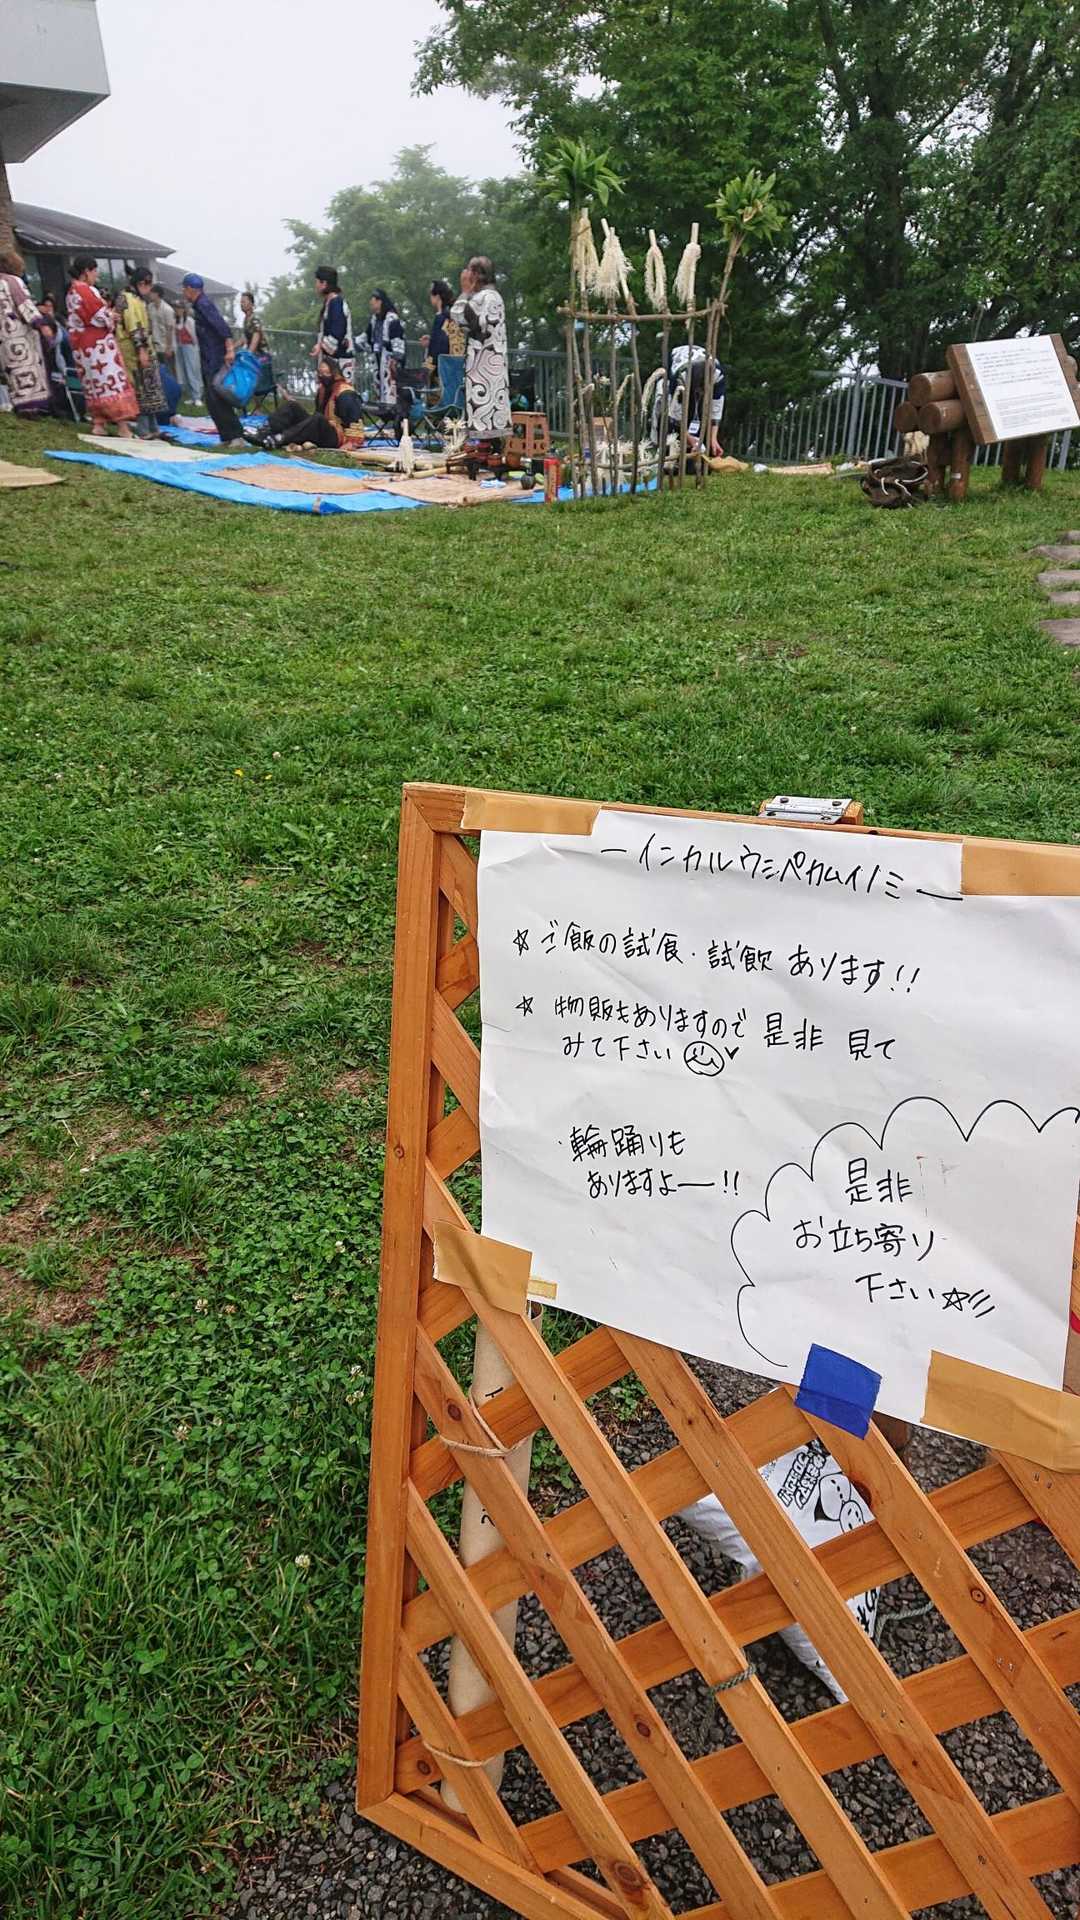 ーインカルウシペカムイノミー
☆ ご飯の試食・試飲 あります!!
☆ 物販もありますので 是非 見て
みて下さい
・輪踊りも
ありますよー!!
是非
お立ち寄り
下さい☆彡